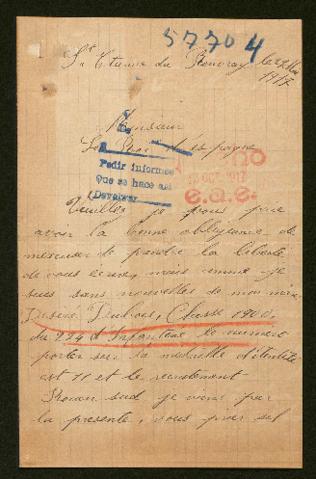 57704
St Etienne du Rouvray, le
1917
Monsieur
Le Roi d'Espagne
Pedir informes
Que se hace así
Devolver
OCT 1917
e.a.e.
Veuillez je vous prie
avoir la bonne obligeance de
m'excuser de prendre la liberté
de vous écrire, mais comme je
suis sans nouvelles de mon mari
Dubois, Classe 1900,
du 224 d'Infanterie le numéro
porter sur la médaille d'identité
est 11 et le recrutement
Rouen sud je viens par
la présente, vous prier